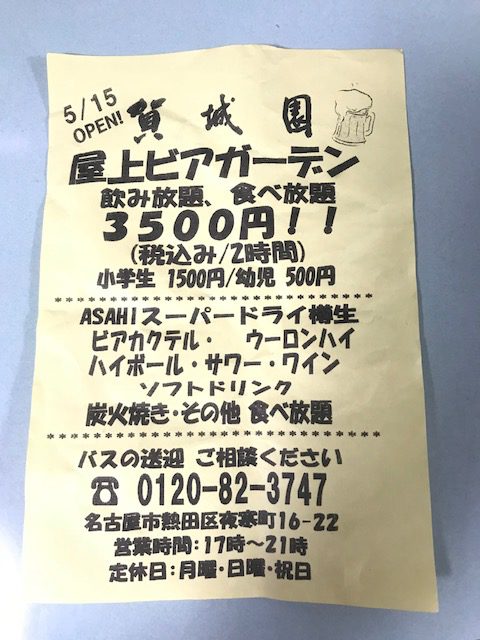 5/15
OPEN!
賀城園
屋上ビアガーデン
飲み放題、食べ放題
3500円!!
(税込み/2時間)
小学生 1500円/幼児 500円
************************************
ASAHIスーパードライ樽生
ビアカクテル・ ウーロンハイ
ハイボール・サワー・ワイン
ソフトドリンク
炭火焼き・その他 食べ放題
************************************
バスの送迎 ご相談ください
☎ 0120-82-3747
名古屋市熱田区夜寒町16-22
営業時間:17時~21時
定休日:月曜・日曜・祝日